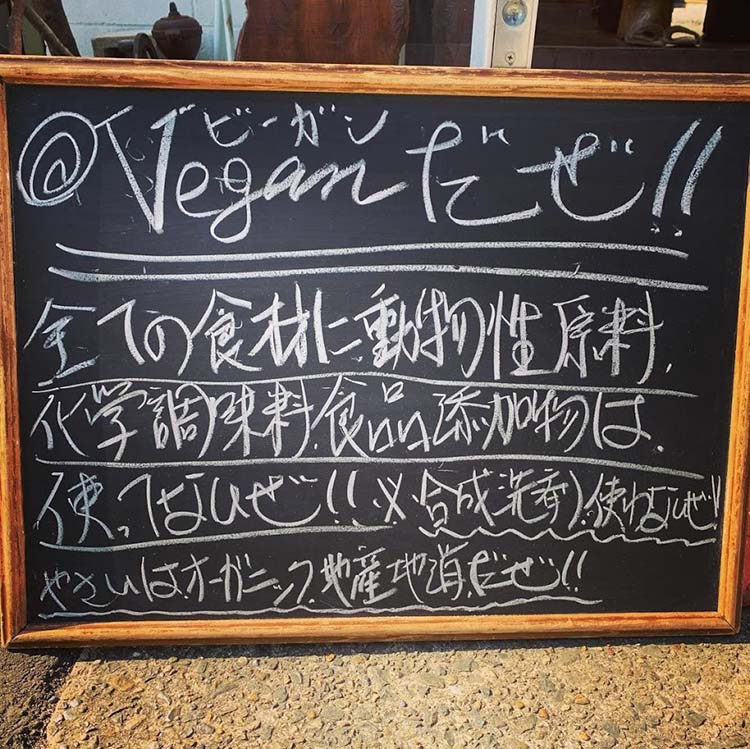 ビーガン
@Veganだぜ!!
全ての食材に動物性原料、
化学調味料、食品添加物は、
使ってないぜ!! ※合成洗剤、使わないぜ!
やさいはオーガニック、地産地消、だぜ!!